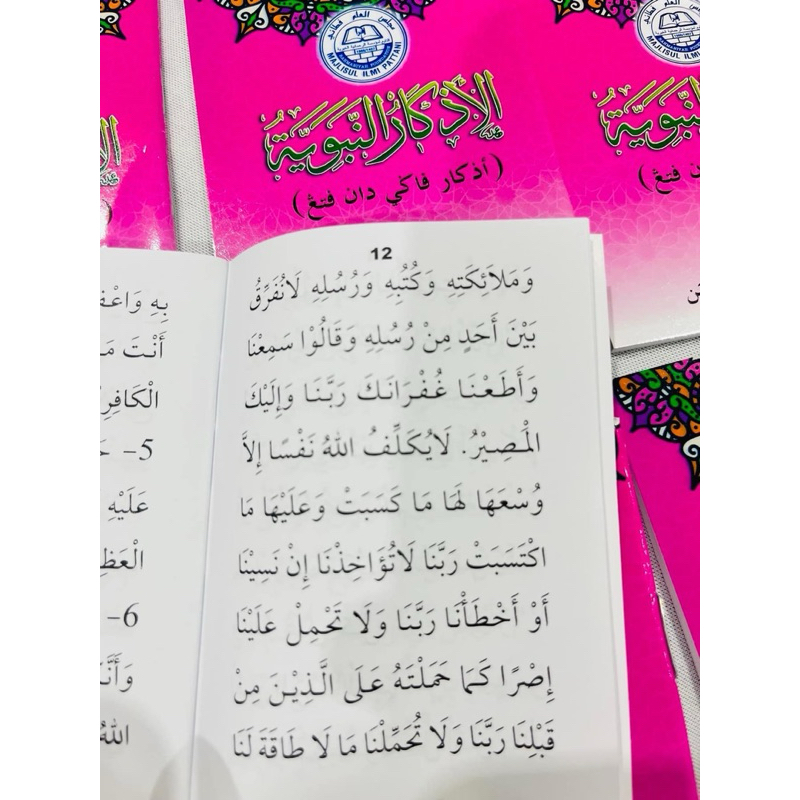 مجلس العلم فطاني
MAJLISUL ILMI PATTANI
الأذكار النبوية
(أذكار ڤاڬي دان ڤتڠ)
12
وَمَلاَئِكَتِهِ وَكُتُبِهِ وَرُسُلِهِ لَانُفَرِّقُ
بَيْنَ أَحَدٍ مِنْ رُسُلِهِ وَقَالُوْا سَمِعْنَا
وَأَطَعْنَا غُفْرَانَكَ رَبَّنَا وَإِلَيْكَ
الْمَصِيْرُ. لَايُكَلِّفُ اللهُ نَفْسًا إِلاَّ
وُسْعَهَا لَهَا مَا كَسَبَتْ وَعَلَيْهَا مَا
اكْتَسَبَتْ رَبَّنَا لَاتُؤَاخِذْنَا إِنْ نَسِيْنَا
أَوْ أَخْطَأْنَا رَبَّنَا وَلَا تَحْمِلْ عَلَيْنَا
إِصْرًا كَمَا حَمَلْتَهُ عَلَى الَّذِيْنَ مِنْ
قَبْلِنَا رَبَّنَا وَلَا تُحَمِّلْنَا مَا لَا طَاقَةَ لَنَا
بِهِ
أَنْتَ
5-
عَلَيْهِ
6-
اللهُ